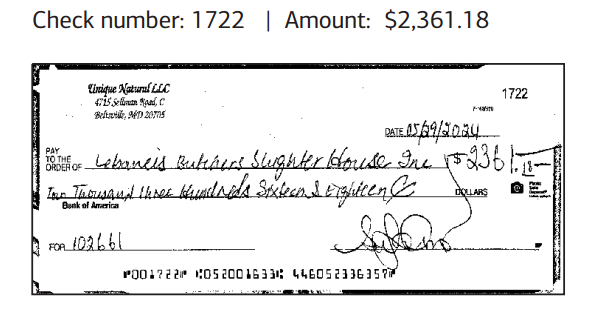 Check number: 1722 | Amount: $2,361.18
Unique Natural LLC
4715 Sellman Road, C
Beltsville, MD 20705
1722
DATE 05/29/2024
PAY TO THE ORDER OF Lebaneis Butchers Slughter House Inc $2361.18
Two Thousand three Hundreds Sixteen & Eighteen C DOLLARS
Bank of America
FOR 102661
⑈001722⑈ ⑆052001633⑆ 446052336357⑈